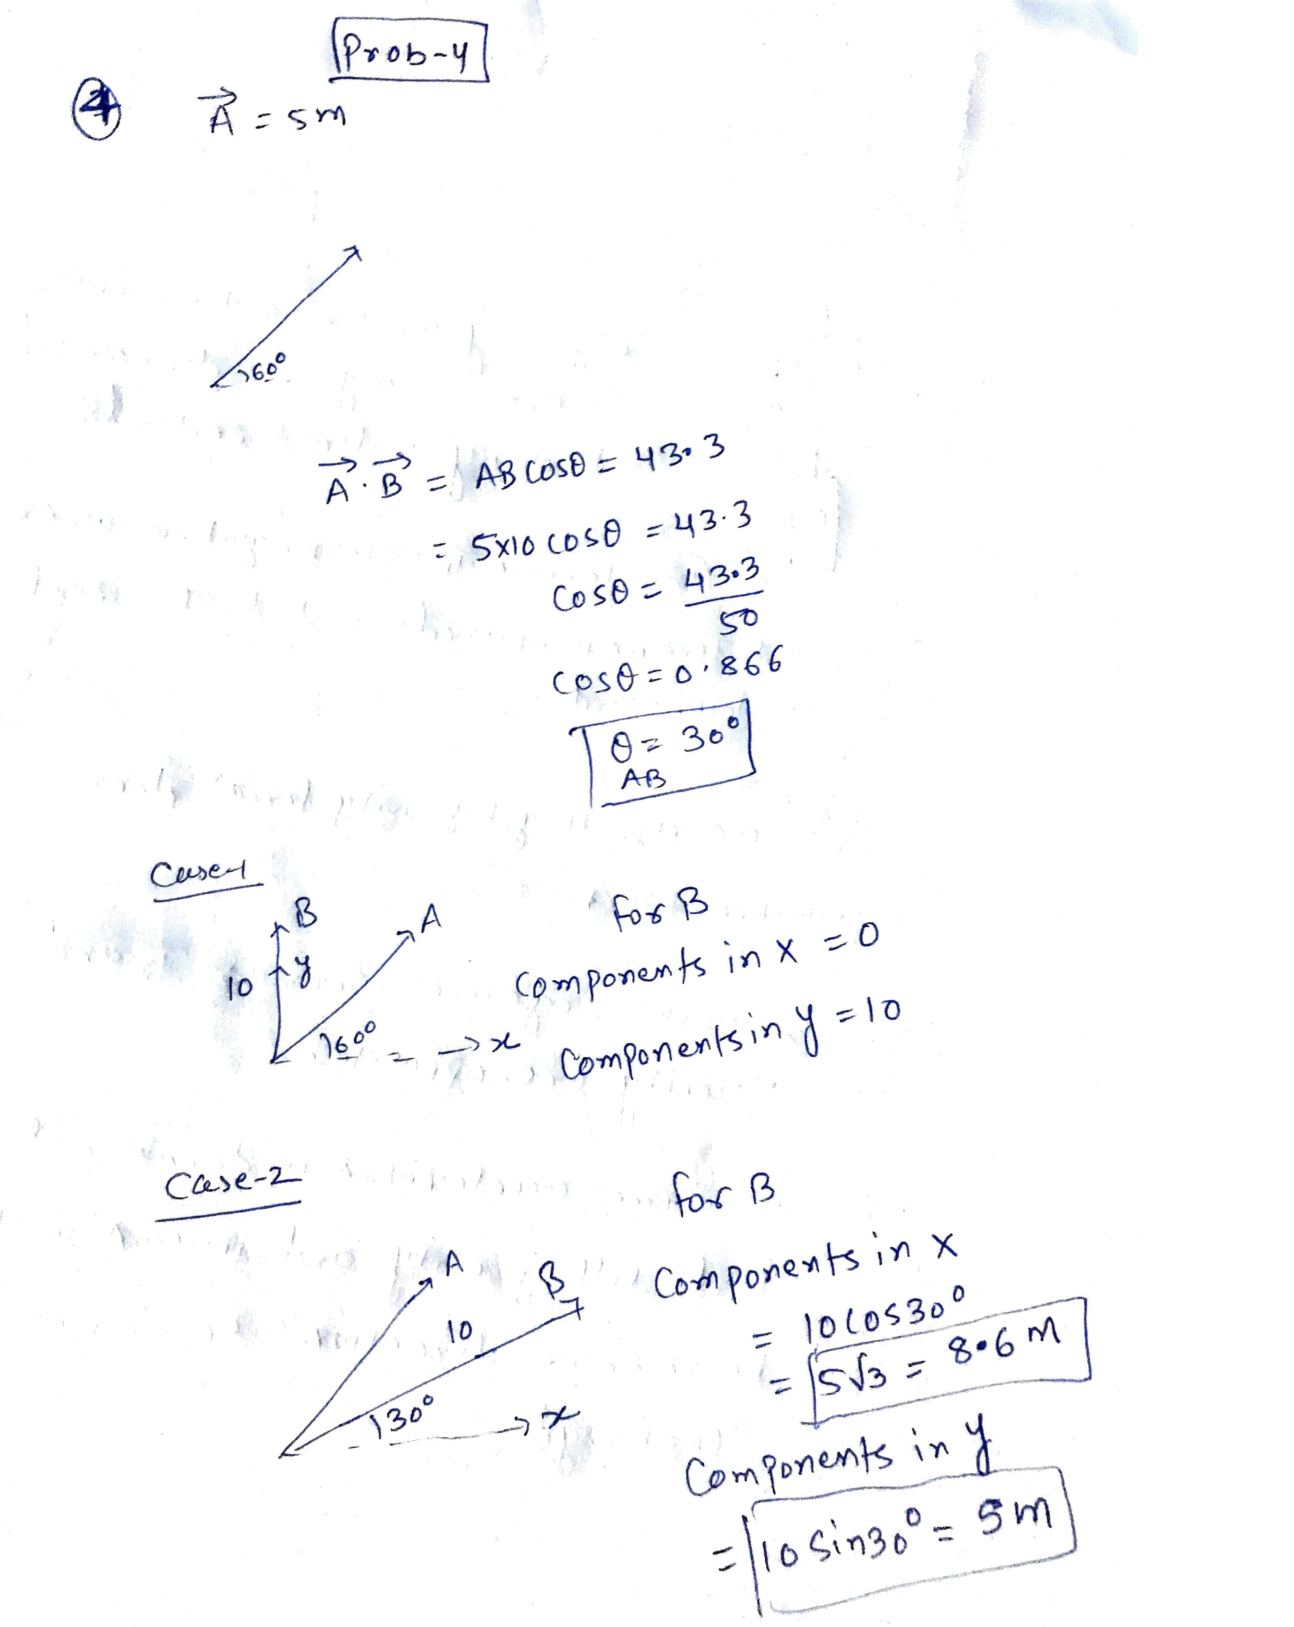 Prob-4
④ A⃗ = 5m
60°
A⃗ · B⃗ = AB cosθ = 43.3
= 5x10 cosθ = 43.3
cosθ = 43.3
50
cosθ = 0.866
θ = 30°
AB
Case-1
B
A
for B
10
y
components in x = 0
60°
→x
components in y = 10
Case-2
for B
A
B
components in x
10
= 10cos30°
= 5√3 = 8.6 m
30°
→x
components in y
= 10 sin30° = 5m